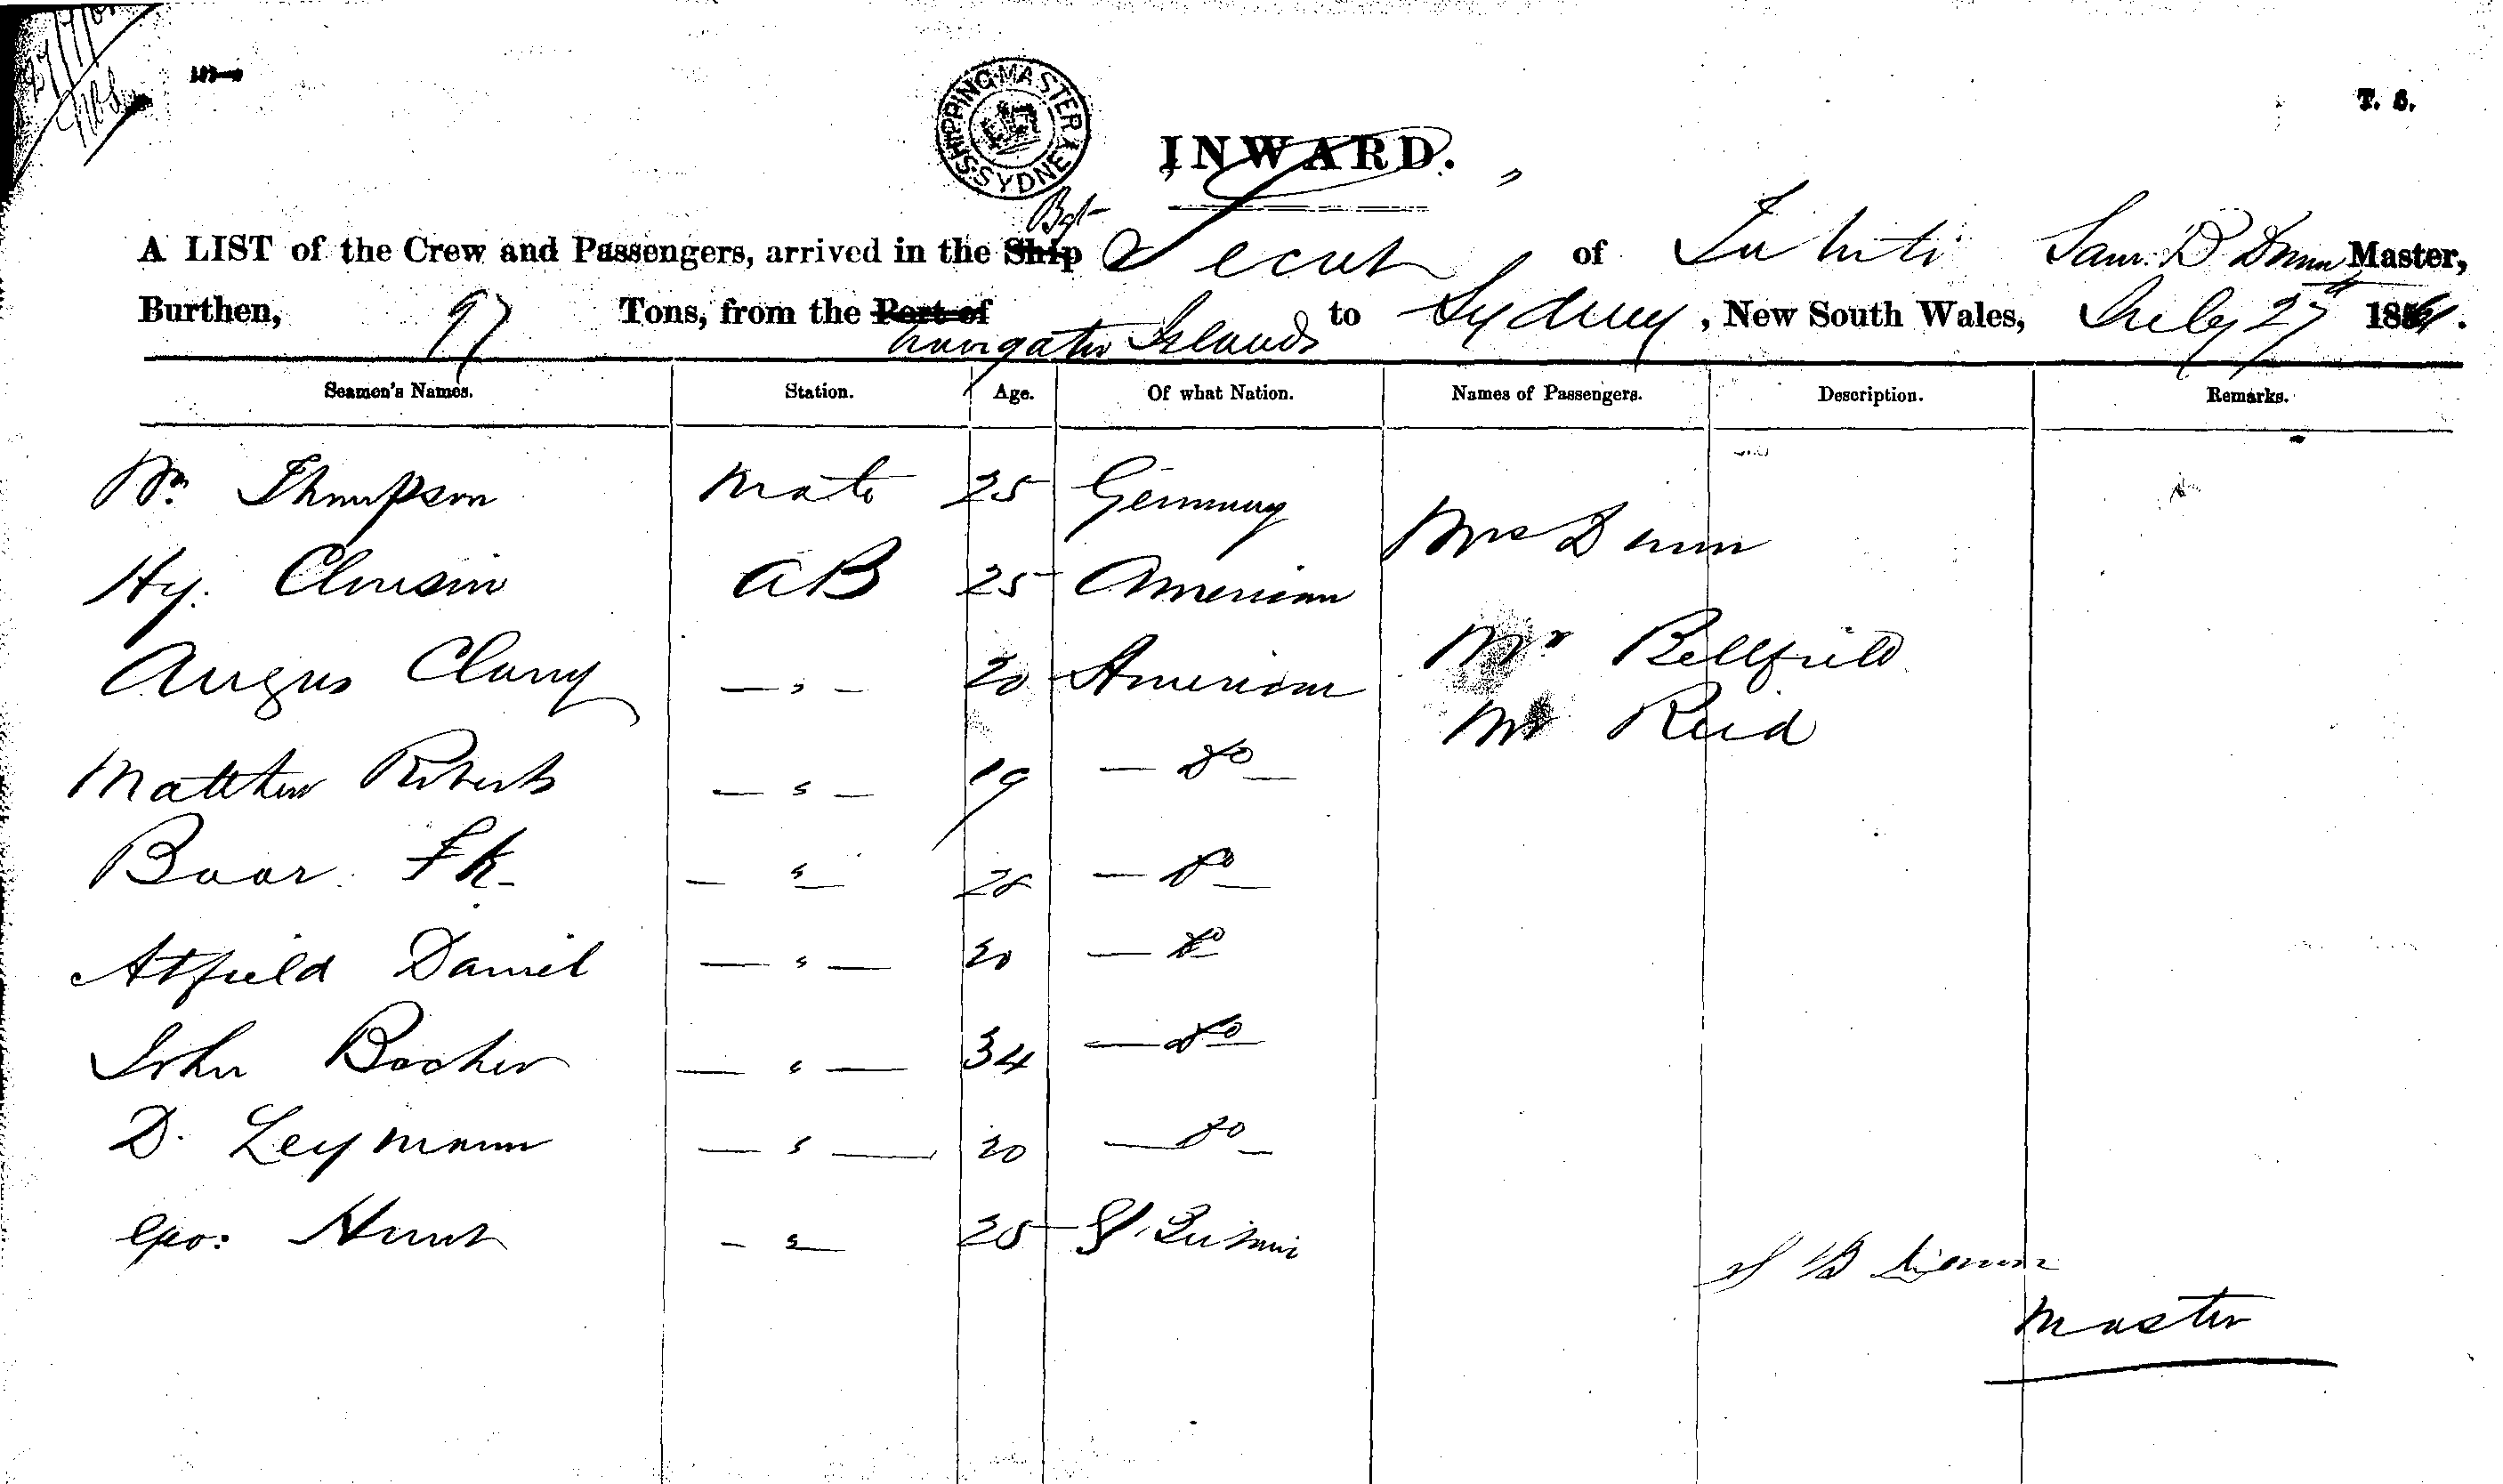 SHIPPING MASTER SYDNEY
T. S.
INWARD.
Bgt
A LIST of the Crew and Passengers, arrived in the Ship of Tahiti Sam. B Dunn Master,
Burthen, 97 Tons, from the Port of Navigator Islands to Sydney, New South Wales, July 27th 1861.
Seamen's Names. Station. Age. Of what Nation. Names of Passengers. Description. Remarks.
Wm Thompson Mate 25 Germany
Mrs Dunn
Hy. AB 25 American
Angus 20 American Mr Bellfield
Mr Reid
Matthew Roberts - " - 19 - do -
Baar Fk. - " - 28 - do -
Atfield Daniel - " - 20 - do -
John Booker - " - 34 - do -
D. Leymann - " - 20 - do -
Geo: Hunt - " - 25 Gt. Britain
S B Dunn
Master